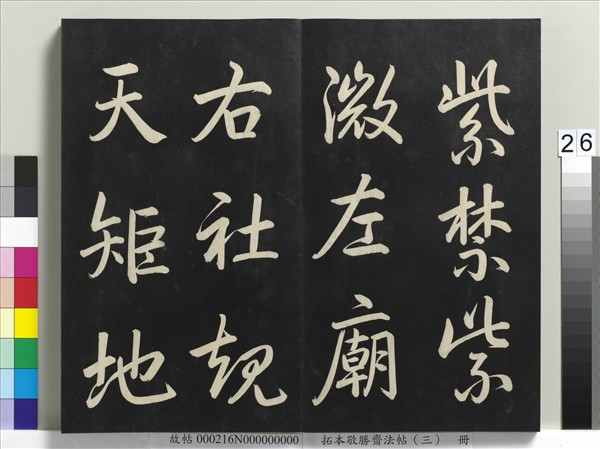 紫禁紫
微左廟
右社規
天矩地
故帖 000216N000000000 拓本敬勝齋法帖（三） 冊
26